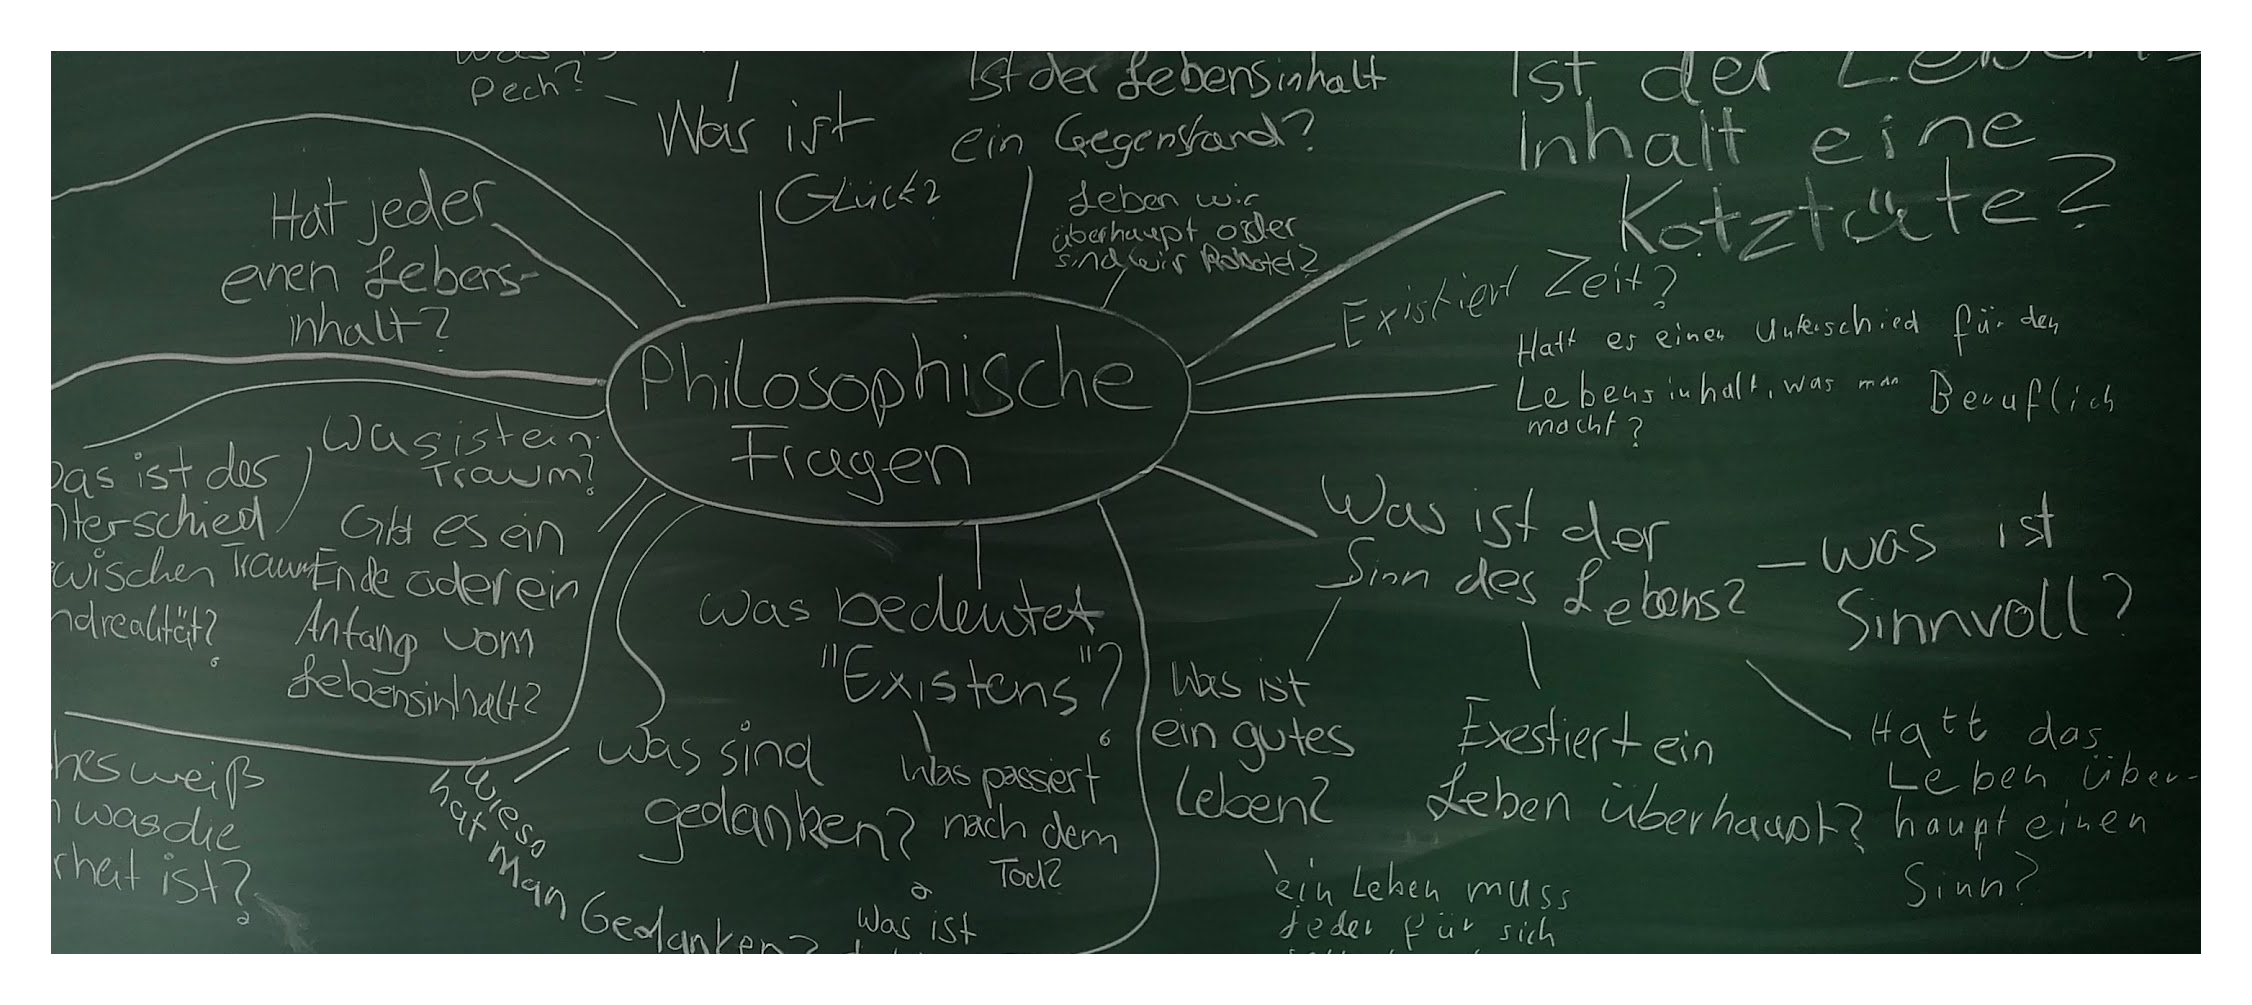 Pech?
Was ist
Glück?
Ist der Lebensinhalt
ein Gegenstand?
Leben wir
überhaupt oder
sind wir Roboter?
Ist der Lebens
Inhalt eine
Kotztüte?
Hat jeder
einen Lebens-
inhalt?
Existiert Zeit?
Hatt es einen Unterschied für den
Lebensinhalt, was man Beruflich
macht?
Philosophische
Fragen
Was ist ein
Traum?
ist der
zwischen Traum
Gibt es ein
Ende oder ein
Anfang vom
Lebensinhalt?
Was ist der
Sinn des Lebens?
was ist
Sinnvoll?
was bedeutet
"Existens"?
Was passiert
nach dem
Tod?
Was ist
was sind
gedanken?
Wieso
hat man Gedanken?
weiß
was die
ist?
Was ist
ein gutes
Leben?
ein Leben muss
jeder für sich
Exestiert ein
Leben überhaupt?
Hatt das
Leben über-
haupt einen
Sinn?